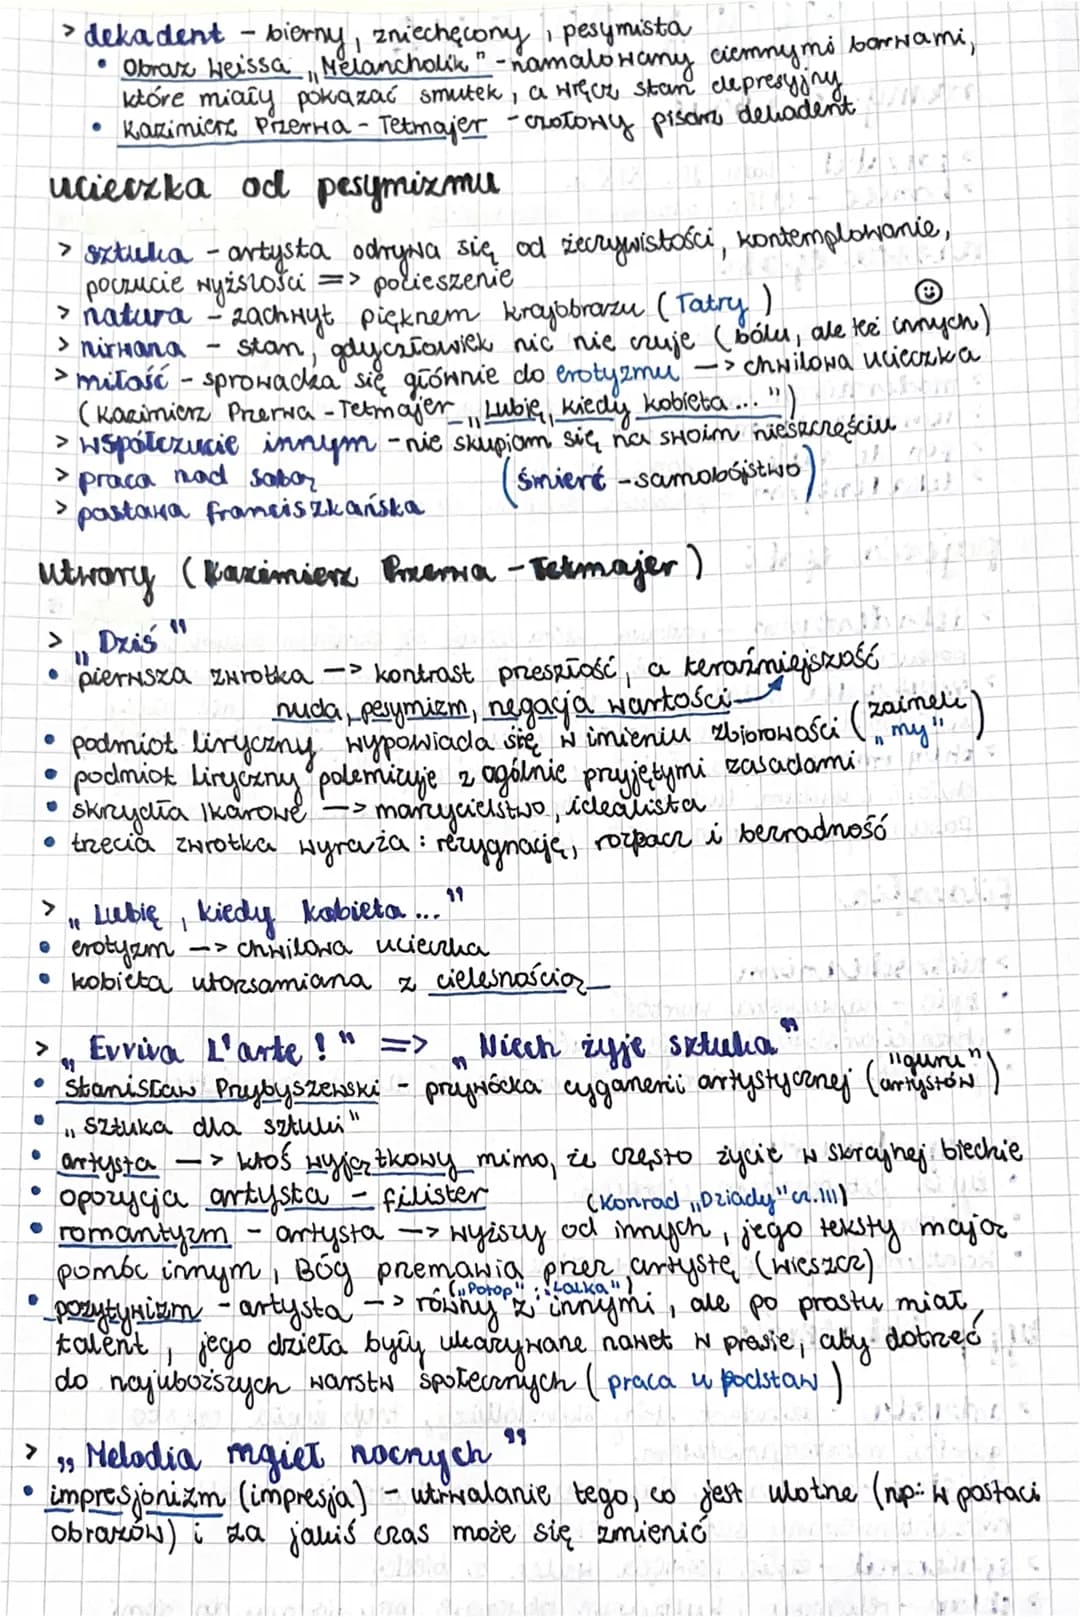 > dekadent - bierny, zniechęcony, pesymista
• Obraz Weissa „Melancholik" - namalowany ciemnymi barwami,
które miały pokazać smutek, a wręcz stan depresyjny
• Kazimierz Przerwa - Tetmajer - czołowy pisarz dekadent
ucieczka od pesymizmu
> sztuka - artysta odrywa się od żeczywistości, kontemplowanie,
poczucie wyższości => pocieszenie
> natura - zachwyt pięknem krajobrazu (Tatry)
> nirwana - stan, gdy człowiek nic nie czuje (bólu, ale też innych)
> miłość - sprowadza się głównie do erotyzmu -> chwilowa ucieczka
(Kazimierz Przerwa - Tetmajer „Lubię, kiedy kobieta...")
> współczucie innym - nie skupiam się na swoim nieszczęściu
> praca nad sobą (śmierć - samobójstwo)
> postawa franciszkańska
utwory (Kazimierz Przerwa - Tetmajer)
> „Dziś"
• pierwsza zwrotka -> kontrast przeszłość, a teraźniejszość
nuda, pesymizm, negacja wartości
• podmiot liryczny wypowiada się w imieniu zbiorowości (zaimek „my")
• podmiot liryczny polemizuje z ogólnie przyjętymi zasadami
• skrzydła Ikarowe -> marzycielstwo, idealista
• trzecia zwrotka wyraża: rezygnację, rozpacz i bezradność
> „Lubię, kiedy kobieta..."
• erotyzm -> chwilowa ucieczka
• kobieta utożsamiana z cielesnością
> „Evviva L'arte!" => „Niech żyje sztuka"
• Stanisław Przybyszewski - przywódca cyganerii artystycznej ("guru" artystów)
• „sztuka dla sztuki"
• artysta -> ktoś wyjątkowy mimo, że często życie w skrajnej biedzie
• opozycja artysta - filister
(Konrad „Dziady" cz.III)
• romantyzm - artysta -> wyższy od innych, jego teksty mają
pomóc innym, Bóg przemawia przez artystę (wieszcz)
(„Potop"; „Lalka")
• pozytywizm - artysta -> równy z innymi, ale po prostu miał
talent, jego dzieła były ukazywane nawet w prasie, aby dotrzeć
do najuboższych warstw społecznych (praca u podstaw)
> „Melodia mgieł nocnych"
• impresjonizm (impresja) - utrwalanie tego, co jest ulotne (np: w postaci
obrazów) i za jakiś czas może się zmienić